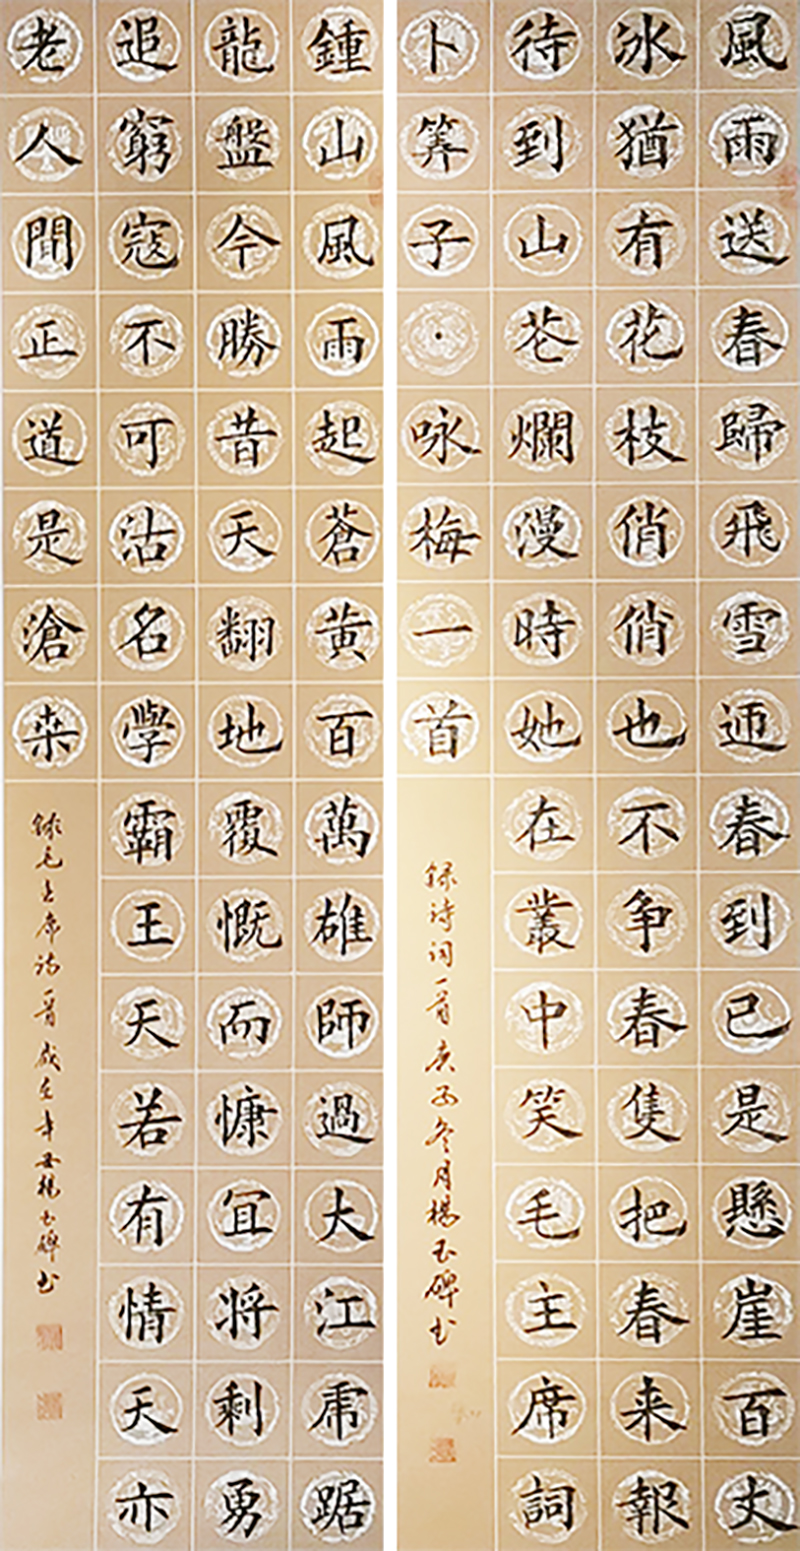 風雨送春歸飛雪迊春到已是懸崖百丈
冰猶有花枝俏俏也不争春隻把春来報
待到山芲爛漫時她在叢中笑毛主席詞
卜筭子·咏梅一首
録诗词一首庚子冬月楊玉碑书
鍾山風雨起蒼黄百萬雄師過大江虎踞
龍盤今勝昔天翻地覆慨而慷冝将剩勇
追窮寇不可沽名學霸王天若有情天亦
老人間正道是滄桒
録毛主席诗一首歲在辛丑楊玉碑书